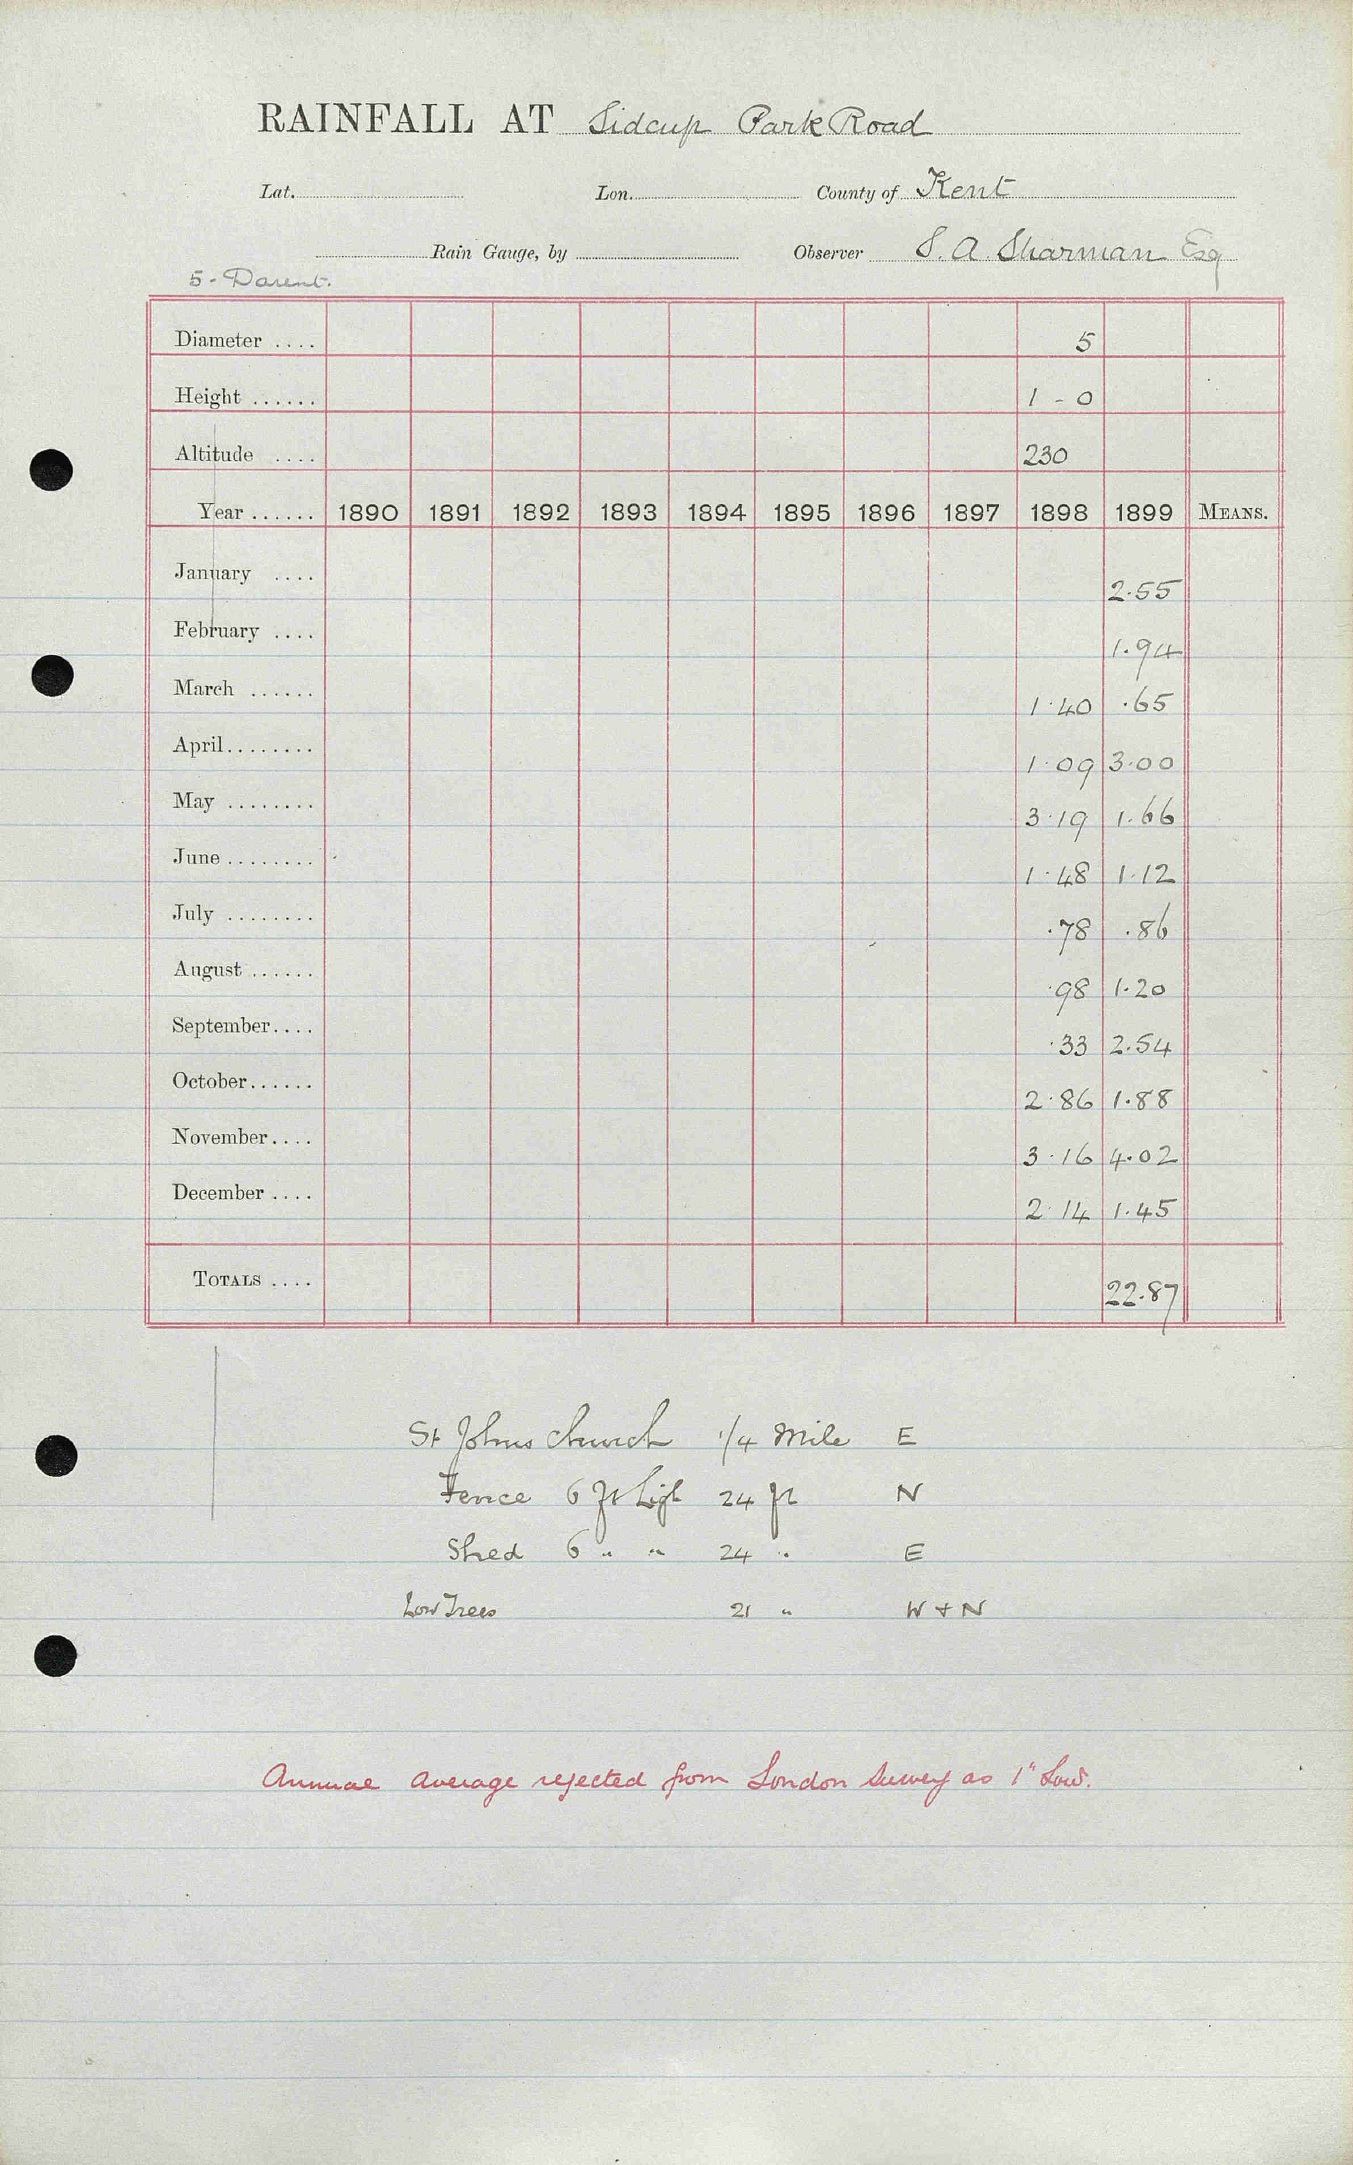 RAINFALL AT Sidcup Park Road
Lat. Lon. County of Kent
Rain Gauge, by Observer S. A. Sharman Esq
5 - Darent.
Diameter .... 5
Height ...... 1 - 0
Altitude .... 230
Year ...... 1890 1891 1892 1893 1894 1895 1896 1897 1898 1899 MEANS.
January .... 2.55
February .... 1.94
March ...... 1.40 .65
April........ 1.09 3.00
May ........ 3.19 1.66
June ........ 1.48 1.12
July ........ .78 .86
August ...... .98 1.20
September.... .33 2.54
October...... 2.86 1.88
November.... 3.16 4.02
December .... 2.14 1.45
TOTALS .... 22.87
St Johns church 1/4 Mile E
Fence 6 ft high 24 ft N
Shed 6 " " 24 " E
Low Trees 21 " W + N
Annual average rejected from London Survey as 1" low.